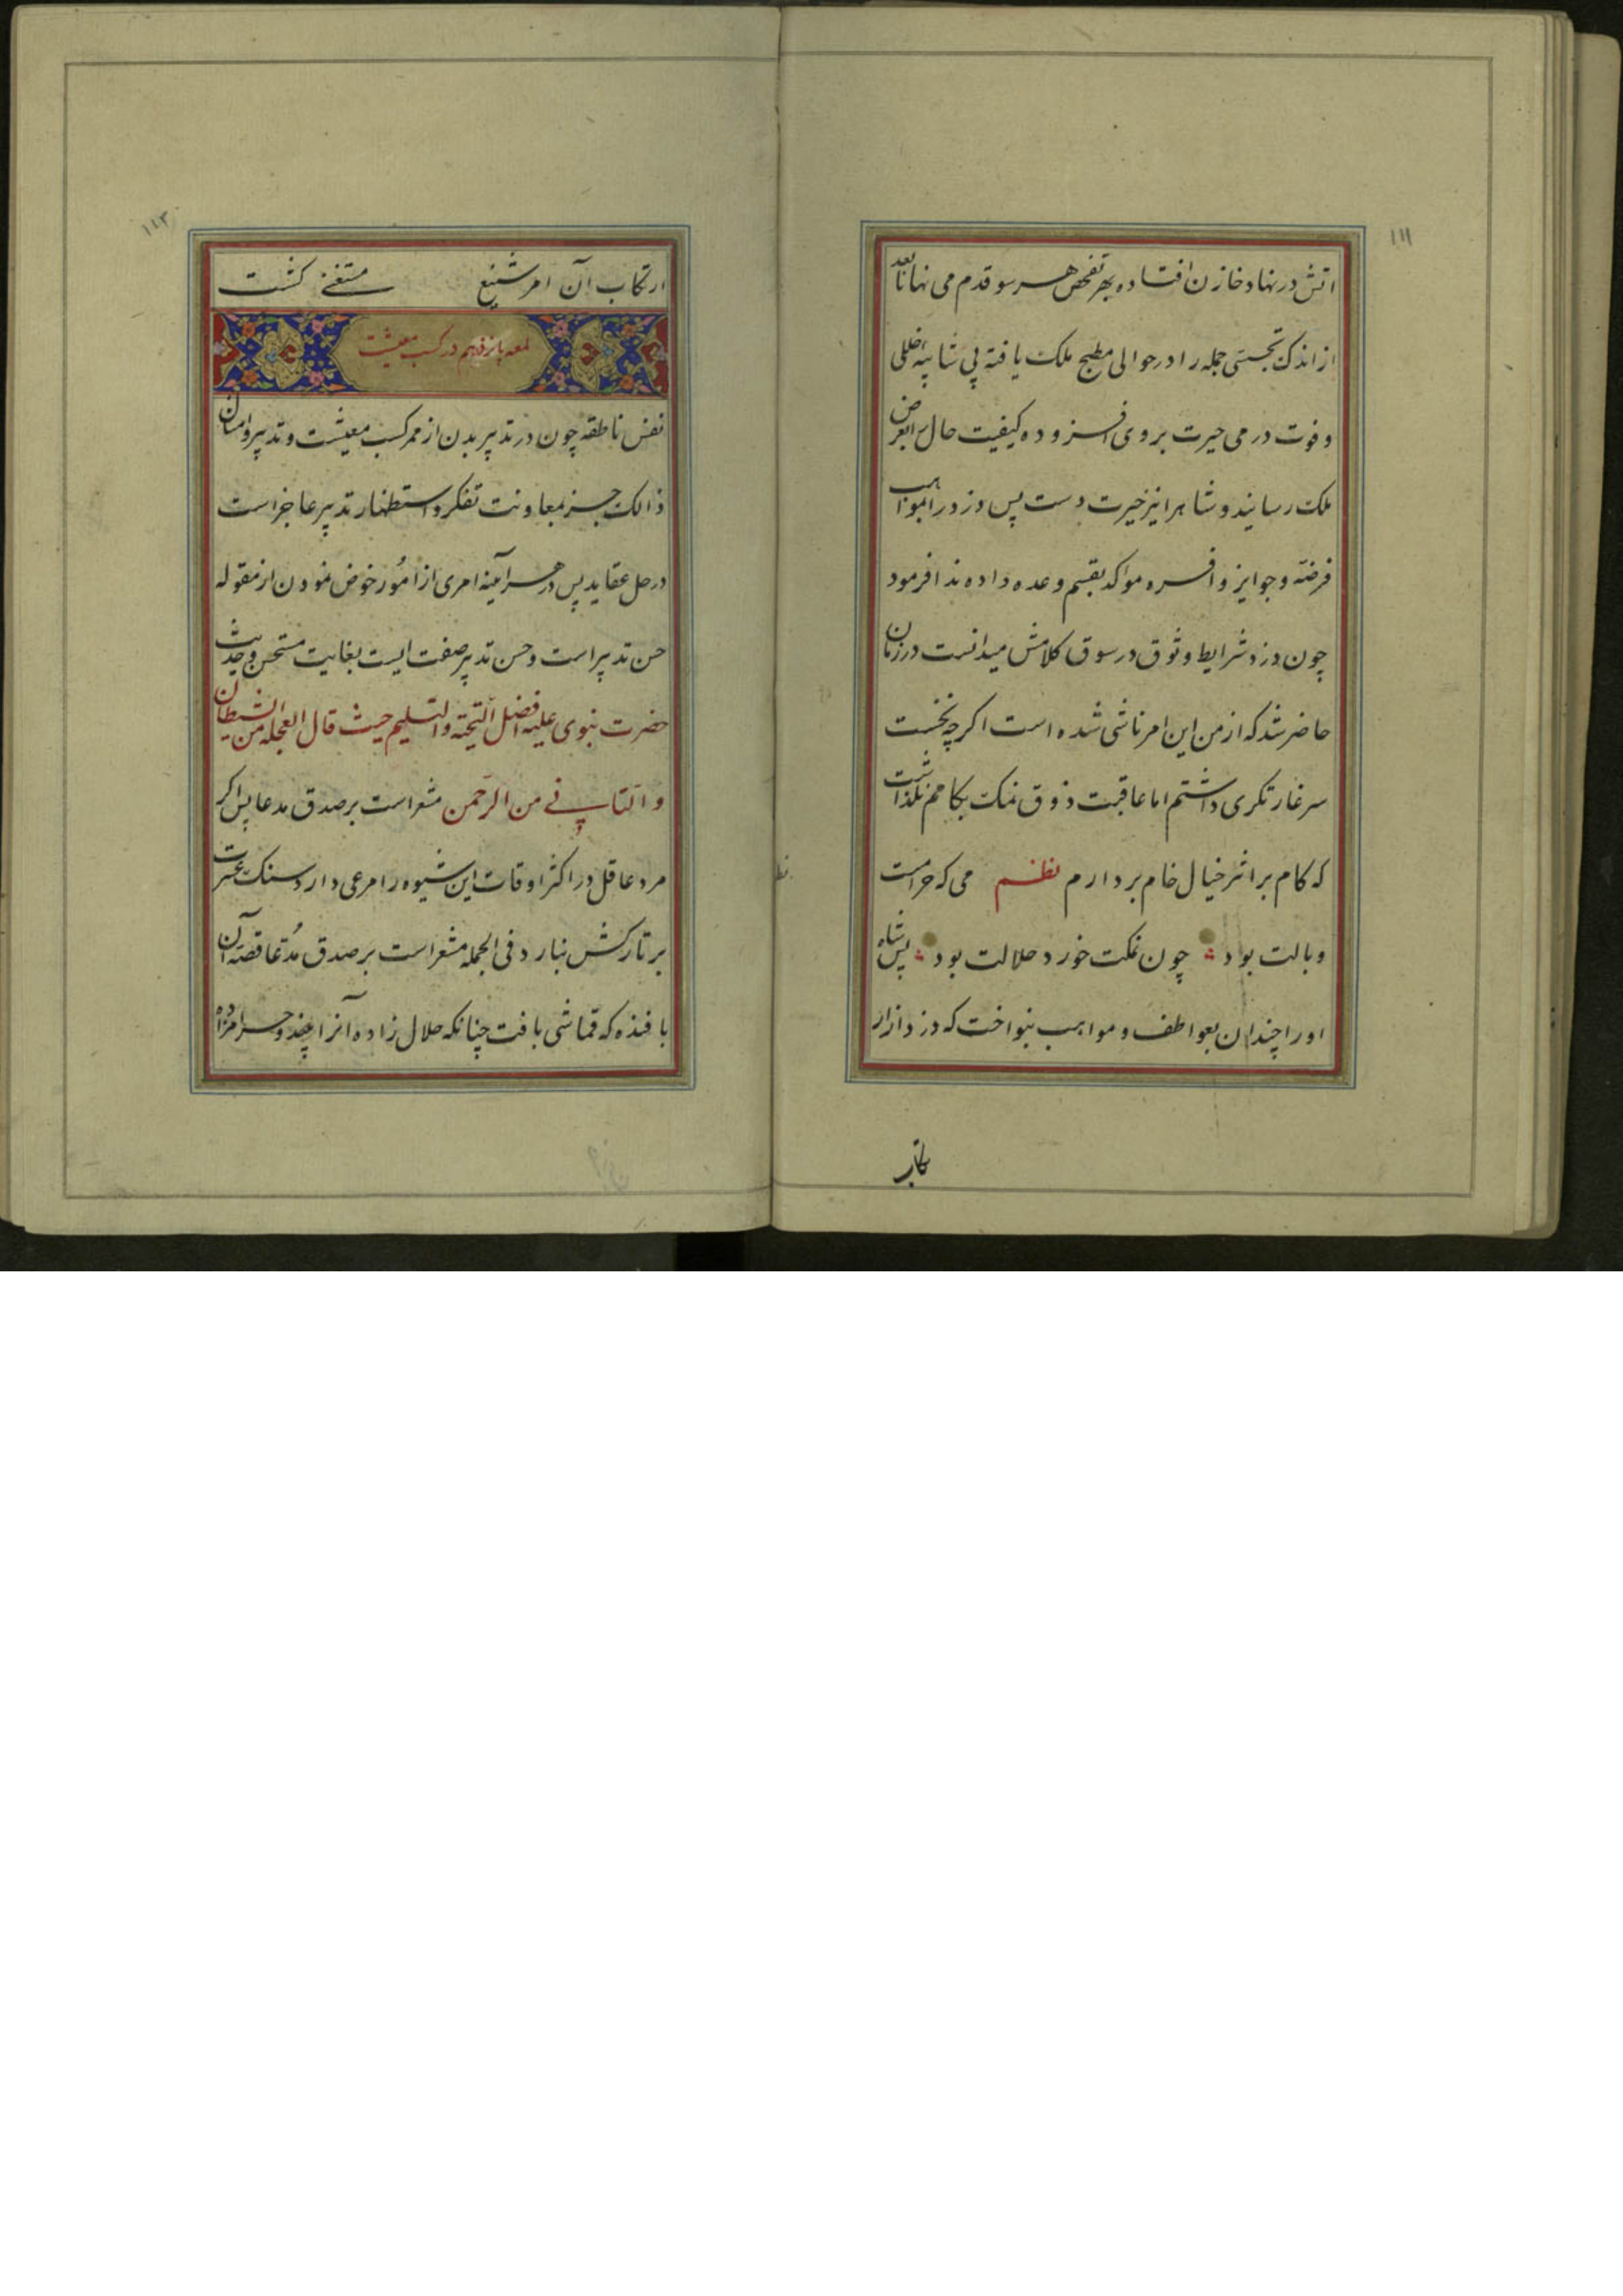 ۱۱۱
اتش در نهاد خازن افتاده بهر تفحص هر سو قدم می نهاد تا بعد
از اندک تجسسی جمله را در حوالی مطبخ ملک یافته بی شایبه خللی
و فوت درمی حیرت بر وی افزوده کیفیت حال بعرض
ملک رسانید و شاهرا نیز حیرت دست پس دزد را بمواهب
فرضه و جوایز وافره مواکد بقسم وعده داده ندا فرمود
چون دزد شرایط وثوق در سوق کلامش میدانست در زمان
حاضر شد که از من این امر ناشی شده است اگرچه نخست
سر غارتگری داشتم اما عاقبت ذوق نمک بکامم نگذاشت
که کام بر اثر خیال خام بردارم نظم می که حرامست
وبالت بود چون نمکت خورد حلالت بود پس شاه
اورا چندان بعواطف و مواهب بنواخت که دزد از ار
۱۱۲
ارتکاب آن امر شنیع مستغنی گشت
لمعه پانزدهم در کسب معیشت
نفس ناطقه چون در تدبیر بدن از ممر کسب معیشت و تدبیر و امثال
ذالک جز بمعاونت تفکر و استظهار تدبیر عاجز است
در حل عقاید پس در هر آینه امری از امُور خوض نمودن از مقوله
حسن تدبیر است و حسن تدبیر صفت ایست بغایت مستحسن و حدیث
حضرت نبوی علیه افضل التحیته والتسلیم حیث قال العجله من الشیطان
و التانی من الرّحمن مشعر است بر صدق مدعا پس اکر
مرد عاقل در اکثر اوقات این شیوه را مرعی دارد سنک عسرت
بر تارکش نبارد فی الجمله مشعر است بر صدق مُدّعا قصّه آن
بافنده که قماشی بافت چنانکه حلال زاده آنرا بیند و حرامزاده